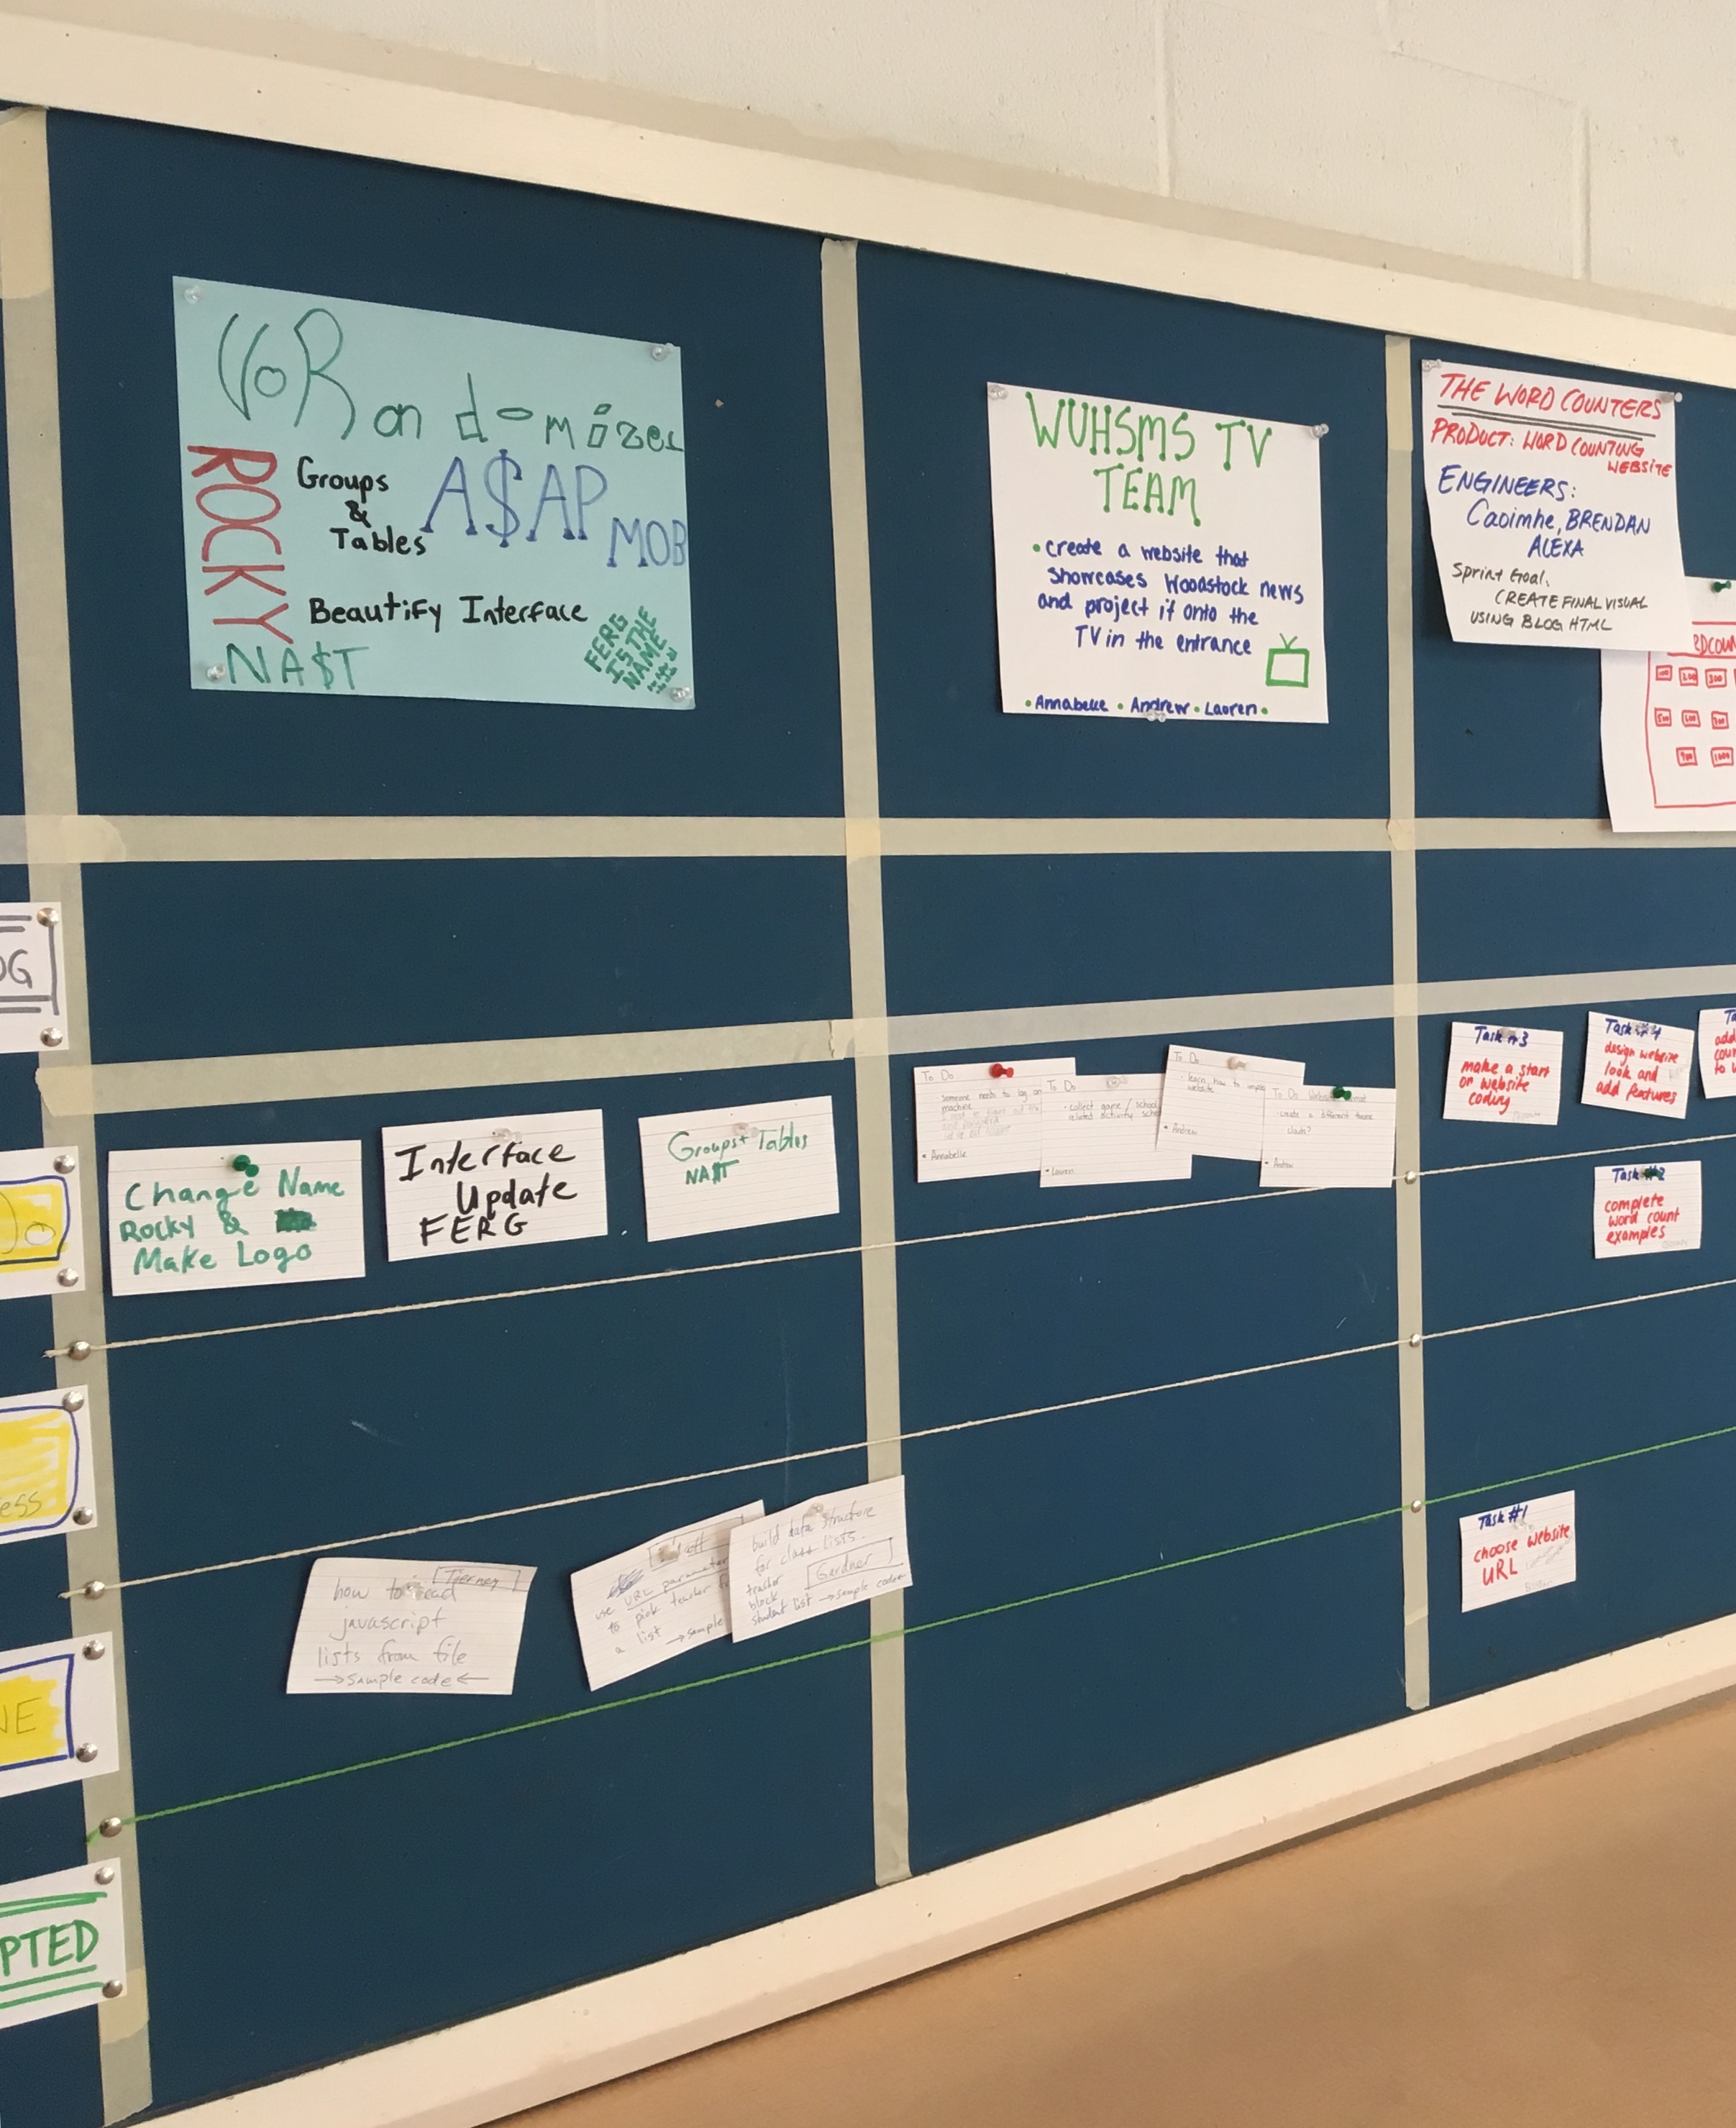 VoRandomizer
ROCKY
Groups
&
Tables
A$AP
MOB
Beautify Interface
NA$T
FERG
IS THE
NAME
WUHSMS TV
TEAM
• create a website that
showcases Woodstock news
and project it onto the
TV in the entrance
• Annabelle • Andrew • Lauren •
THE WORD COUNTERS
PRODUCT: WORD COUNTING
WEBSITE
ENGINEERS:
Caoimhe, BRENDAN
ALEXA
Sprint Goal:
CREATE FINAL VISUAL
USING BLOG HTML
RDCOUN
100 200 300
500 600 700
900 1000
OG
Change Name
Rocky &
Make Logo
Interface
Update
FERG
Groups + Tables
NA$T
To Do
someone needs to log on
machine
• Annabelle
To Do
• collect game / school
related activity sche
• Lauren
To Do
• learn how to
website
• Andrew
To Do
• create a different theme
• Andrew
Task #3
make a start
on website
coding
Task #4
design website
look and
add features
Ta
add
coun
to w
Task #2
complete
word count
examples
ess
how to read
Tierney
javascript
lists from file
→ sample code ←
use URL parameter
to pick teacher
a list
→ sample
build data structure
for class lists
teacher
Gardner
block
student list → sample code
Task #1
choose website
URL
NE
PTED